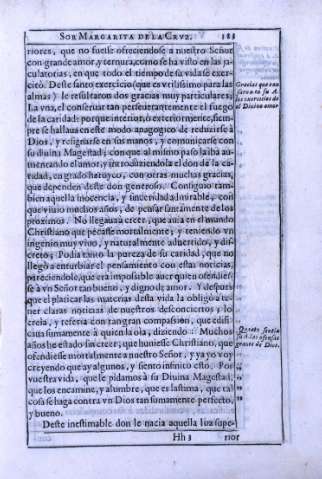 SOR MARGARITA DE LA CRVZ. 183
riores, que no fuesse ofreciendose a nuestro Señor
con grande amor y ternura, como se ha visto en las ja-
culatorias, en que todo el tiempo de su vida se exer-
citò. Deste santo exercicio (que es vtilissimo para las
almas) le resultaron dos gracias muy particulares.
La vna, el conseruar tan perseuerantemente el fuego
de la caridad: porque interior, ò exteriormẽte, siem-
pre se hallaua en este modo apagogico de reduzirse à
Dios, y resignarse en sus manos, y comunicarse con
su diuina Magestad; con que al mismo passo iba au-
mentando el amor, y introduziendola el don de la ca-
ridad, en grado heroyco, con otras muchas gracias,
que dependen deste don generoso. Consiguio tam-
bien aquella inocencia, y sinceridad admirable, con
que viuio muchos años, de pensar santamente de los
proximos. No llegaua à creer, que auia en el mundo
Christiano que pecasse mortalmente; y teniendo vn
ingenio muy viuo, y naturalmente aduertido, y dis-
creto; Podia tanto la pureza de su caridad, que no
llegò a enturbiar el pensamiento con estas noticias,
pareciendole, que era impossible auer quien ofendies-
se à vn Señor tan bueno, y digno de amor. Y despues
que el platicar las materias desta vida la obligò a te-
ner claras noticias de nuestros desconciertos; lo
creia, y referia con tan gran compasion, que edifi-
caua sumamente à quien la oia, diziendo: Muchos
años he estado sin creer, que huuiesse Christiano, que
ofendiesse mortalmente a nuestro Señor, y ya yo voy
creyendo que ay algunos, y siento infinito esto. Por
vuestra vida, que le pidamos à su Diuina Magestad,
que los encamine, y alumbre, que es lastima, que tal
cosa se haga contra vn Dios tan sumamente perfecto,
y bueno.
Deste inestimable don le nacia aquella luz supe-
Hh 3 rior
Gracias que con
de Diuino amor
Quanto sentia
las ofensas
de Dios.